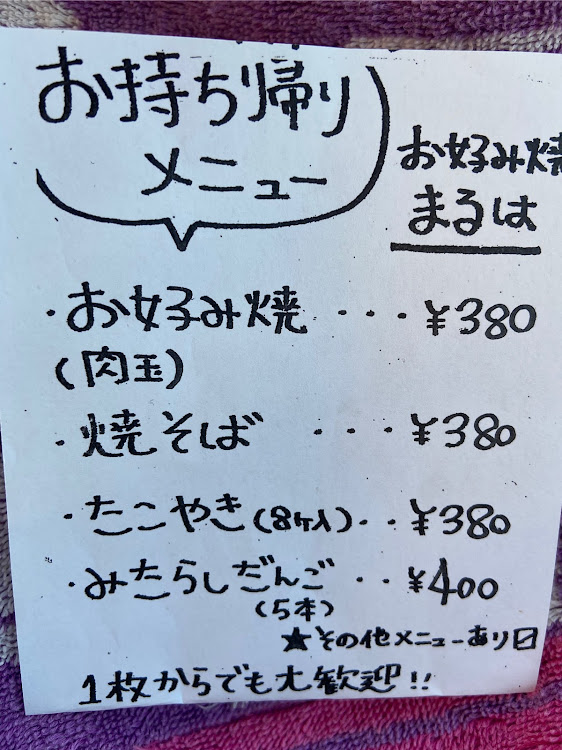 お持ち帰り
メニュー
お好み焼
まるは
・お好み焼 ・・・ ¥380
(肉玉)
・焼そば ・・・ ¥380
・たこやき(8ケ入)・・¥380
・みたらしだんご ・・ ¥400
(5本)
★その他メニューあり〼
1枚からでも大歓迎!!